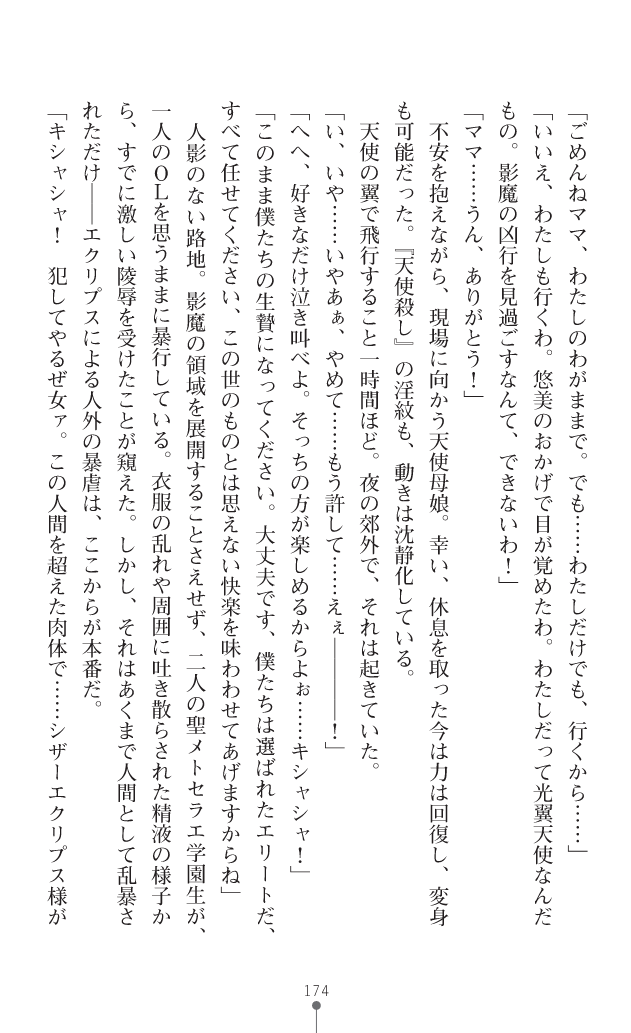 「ごめんねママ、わたしのわがままで。でも……わたしだけでも、行くから……」
「いいえ、わたしも行くわ。悠美のおかげで目が覚めたわ。わたしだって光翼天使なんだ
もの。影魔の凶行を見過ごすなんて、できないわ！」
「ママ……うん、ありがとう！」
　不安を抱えながら、現場に向かう天使母娘。幸い、休息を取った今は力は回復し、変身
も可能だった。『天使殺し』の淫紋も、動きは沈静化している。
　天使の翼で飛行すること一時間ほど。夜の郊外で、それは起きていた。
「い、いや……いやあぁ、やめて……もう許して……えぇ――――！」
「へへ、好きなだけ泣き叫べよ。そっちの方が楽しめるからよぉ……キシャシャ！」
「このまま僕たちの生贄になってください。大丈夫です、僕たちは選ばれたエリートだ、
すべて任せてください、この世のものとは思えない快楽を味わわせてあげますからね」
　人影のない路地。影魔の領域を展開することさえせず、二人の聖メトセラエ学園生が、
一人のＯＬを思うままに暴行している。衣服の乱れや周囲に吐き散らされた精液の様子か
ら、すでに激しい陵辱を受けたことが窺えた。しかし、それはあくまで人間として乱暴さ
れただけ――エクリプスによる人外の暴虐は、ここからが本番だ。
「キシャシャ！　犯してやるぜ女ァ。この人間を超えた肉体で……シザーエクリプス様が
174